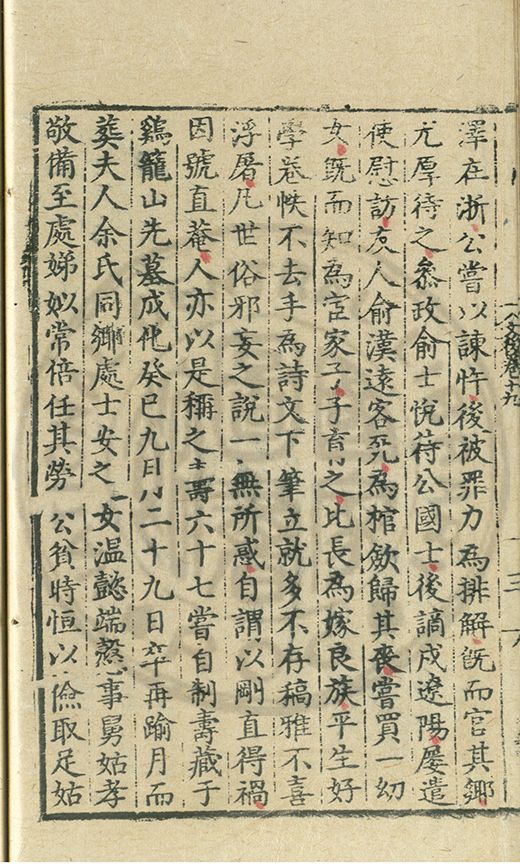 澤在浙公嘗以諫忤後被罪力為排解旣而官其鄉
尤厚待之叅政俞士悅待公國士後謫戍遼陽屢遣
使慰訪友人俞漢遠客死為棺斂歸其喪嘗買一幼
女旣而知為宦家子子育之比長為嫁良族平生好
學卷帙不去手為詩文下筆立就多不存稿雅不喜
浮屠凡世俗邪妄之說一無所惑自謂以剛直得禍
因號直菴人亦以是稱之壽六十七嘗自制壽藏于
鷄籠山先墓成化癸巳九月二十九日卒再踰月而
葬夫人余氏同鄉處士安之女溫懿端慤事舅姑孝
敬備至處娣姒常倍任其勞公貧時恒以儉取足姑